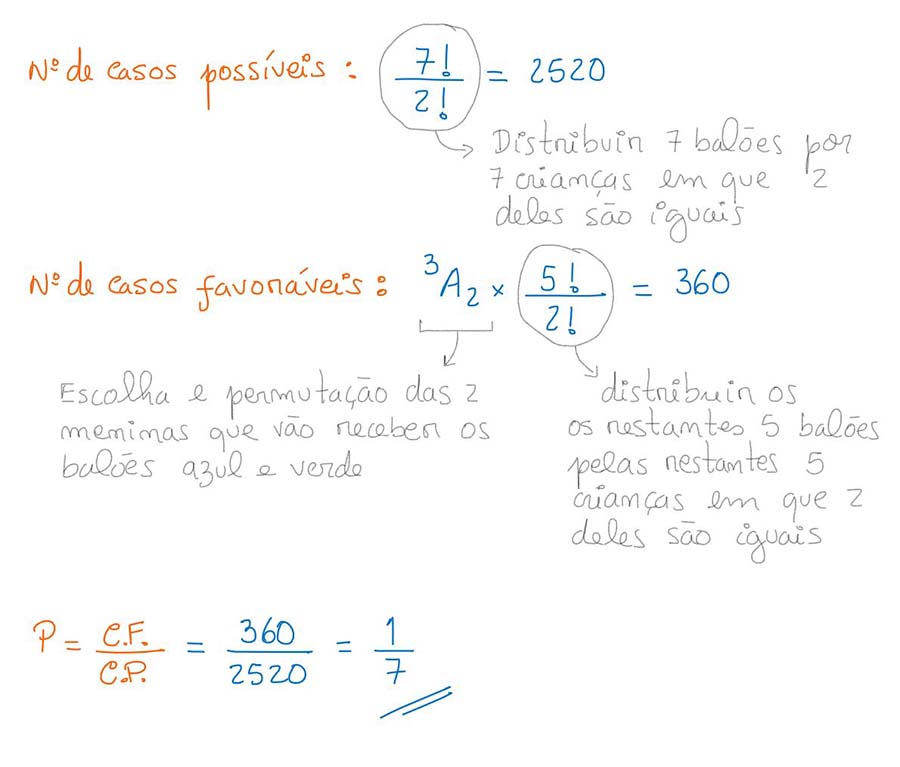 Nº de casos possíveis : 7!/2! = 2520
Distribuir 7 balões por
7 crianças em que 2
deles são iguais
Nº de casos favoráveis : ³A₂ × 5!/2! = 360
Escolha e permutação das 2
meninas que vão receber os
balões azul e verde
distribuir os
os restantes 5 balões
pelas restantes 5
crianças em que 2
deles são iguais
P = C.F./C.P. = 360/2520 = 1/7